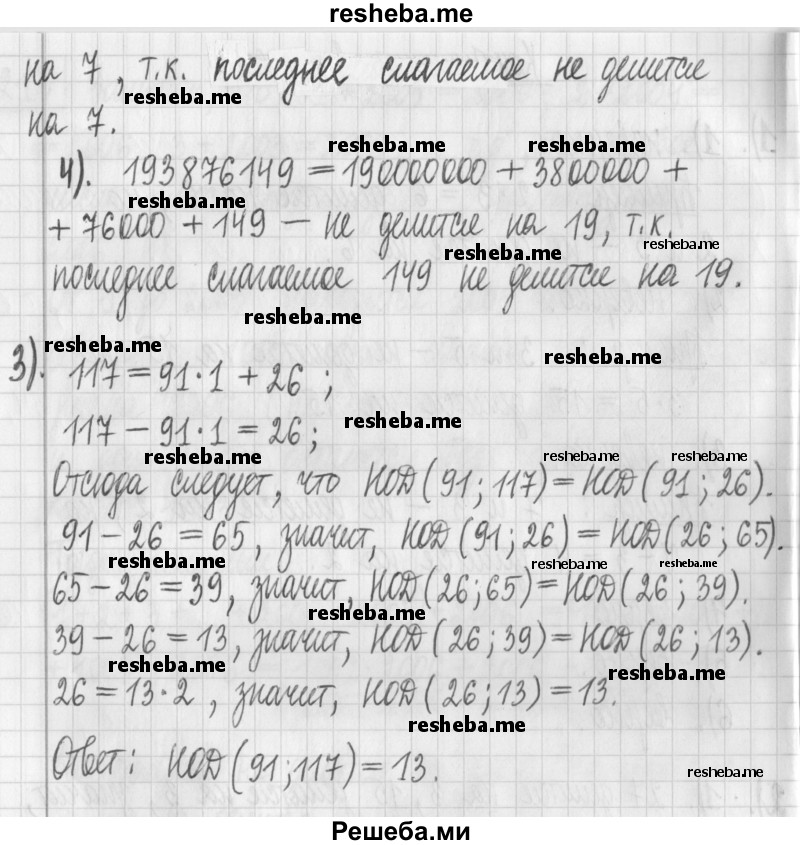 resheba.me
на 7, т.к. последнее слагаемое не делится
resheba.me
на 7.
resheba.me resheba.me
4). 193876149 = 190000000 + 3800000 +
resheba.me
+ 76000 + 149 — не делится на 19, т.к.
resheba.me resheba.me
последнее слагаемое 149 не делится на 19.
resheba.me
3). resheba.me resheba.me
117 = 91·1 + 26 ;
117 − 91·1 = 26; resheba.me
resheba.me resheba.me resheba.me
Отсюда следует, что НОД(91; 117) = НОД(91; 26).
91 − 26 = 65, значит, НОД(91; 26) = НОД(26; 65).
resheba.me resheba.me resheba.me
65 − 26 = 39, значит, НОД(26; 65) = НОД(26; 39).
resheba.me
39 − 26 = 13, значит, НОД(26; 39) = НОД(26; 13).
resheba.me resheba.me
26 = 13·2 , значит, НОД(26; 13) = 13.
resheba.me
Ответ: НОД(91; 117) = 13.
resheba.me
Решеба.ми